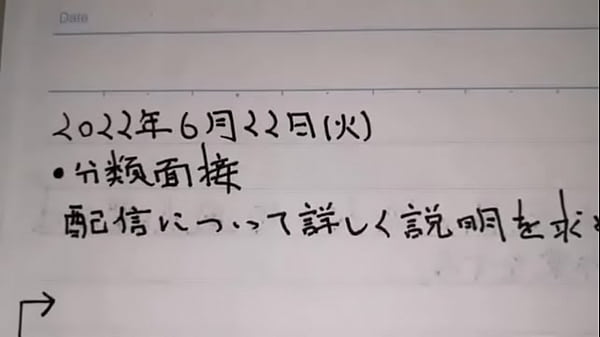 Date
2022年6月22日(火)
•分類面接
配信について詳しく説明を求